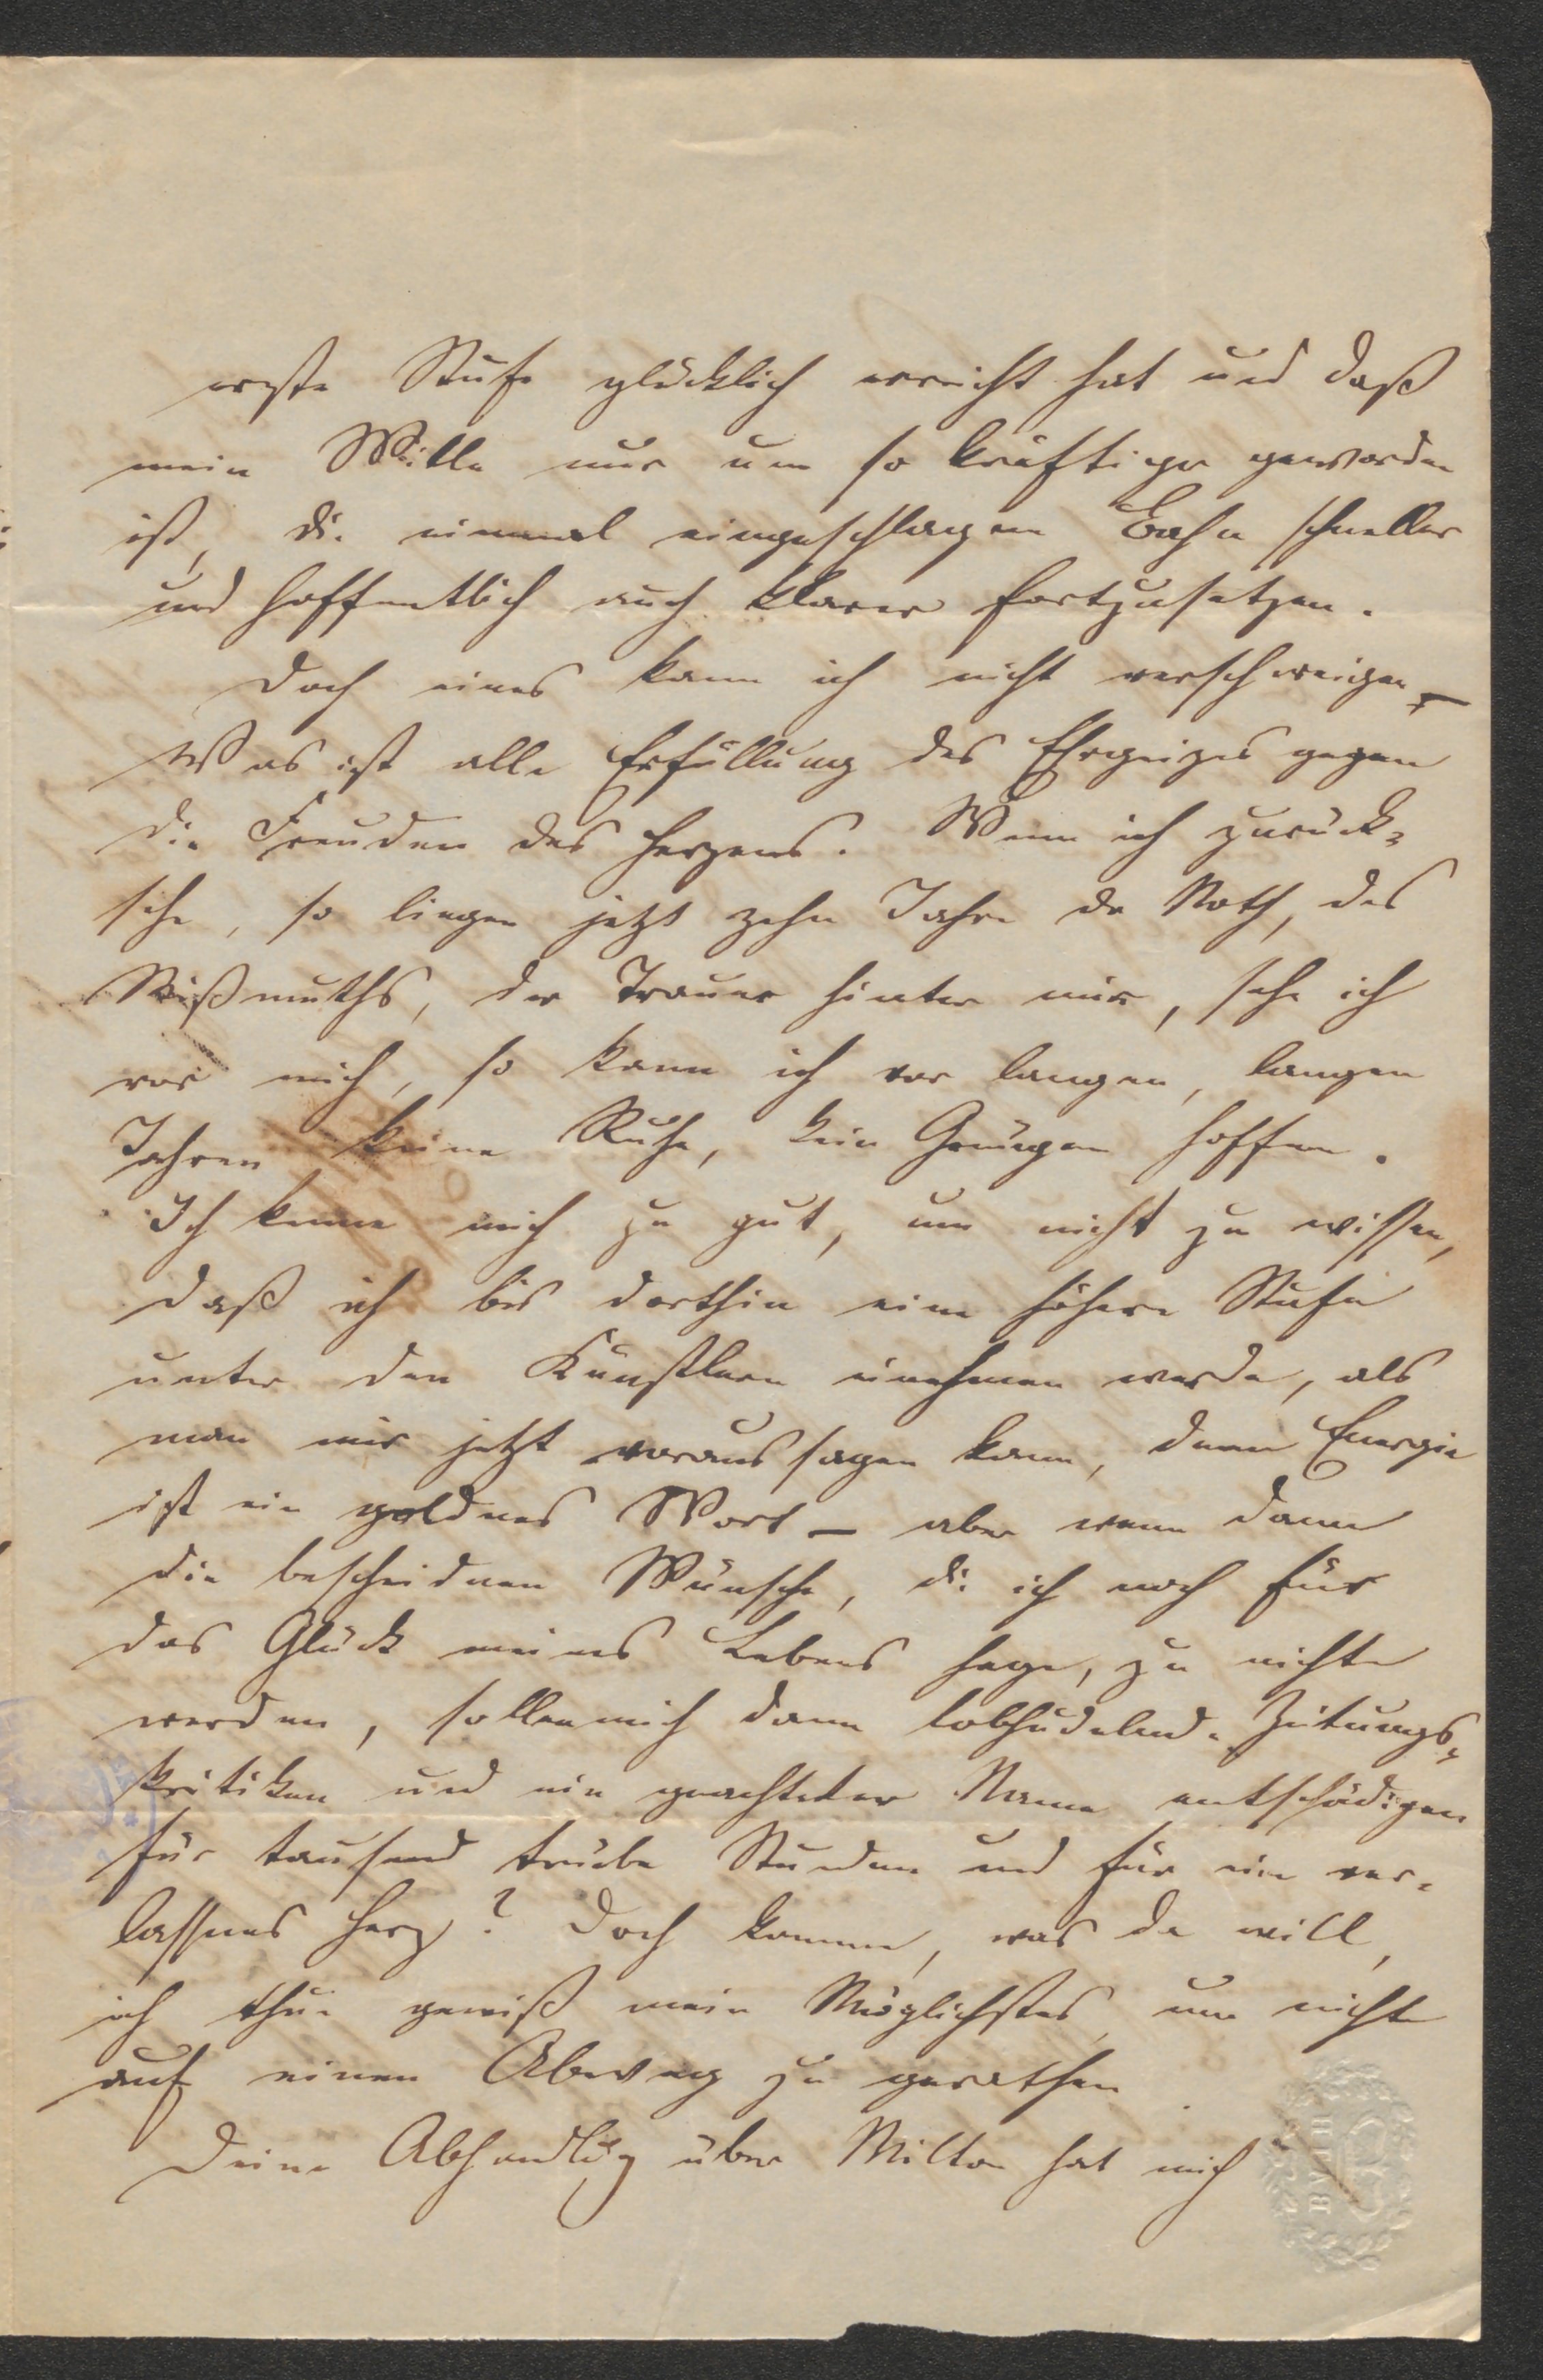 erste Stufe glücklich erreicht hat und daß
mein Wille nur um so kräftiger geworden
ist, die einmal eingeschlagene Bahn schneller
und hoffentlich auch klarer fortzusetzen.
Doch eines kann ich nicht verschweigen –
Was ist alle Erfüllung des Ehrgeizes gegen
die Freuden des Herzens. Wenn ich zurück-
sehe, so liegen jetzt zehn Jahre der Noth, des
Mißmuths, der Trauer hinter mir, sehe ich
vor mich, so kann ich vor langen, langen
Jahren keine Ruhe, kein Genügen hoffen.
Ich kenne mich zu gut, um nicht zu wissen,
daß ich bis dorthin eine höhere Stufe
unter den Künstlern einehmen werde, als
man mir jetzt voraussagen kann, denn Energie
ist ein goldnes Wort – aber wenn dann
die bescheidnen Wünsche, die ich noch für
das Glück meines Lebens hege, zu nichte
werden, sollen mich dann lobhudelnde Zeitungs-
kritiken und ein geachteter Name entschädigen
für tausend trübe Stunden und für ein ver-
lassnes Herz? Doch komme, was da will,
ich thue gewiß mein Möglichstes, um nicht
auf einen Abweg zu gerathen.
Deine Abhandlung über Milton hat mich
BATH